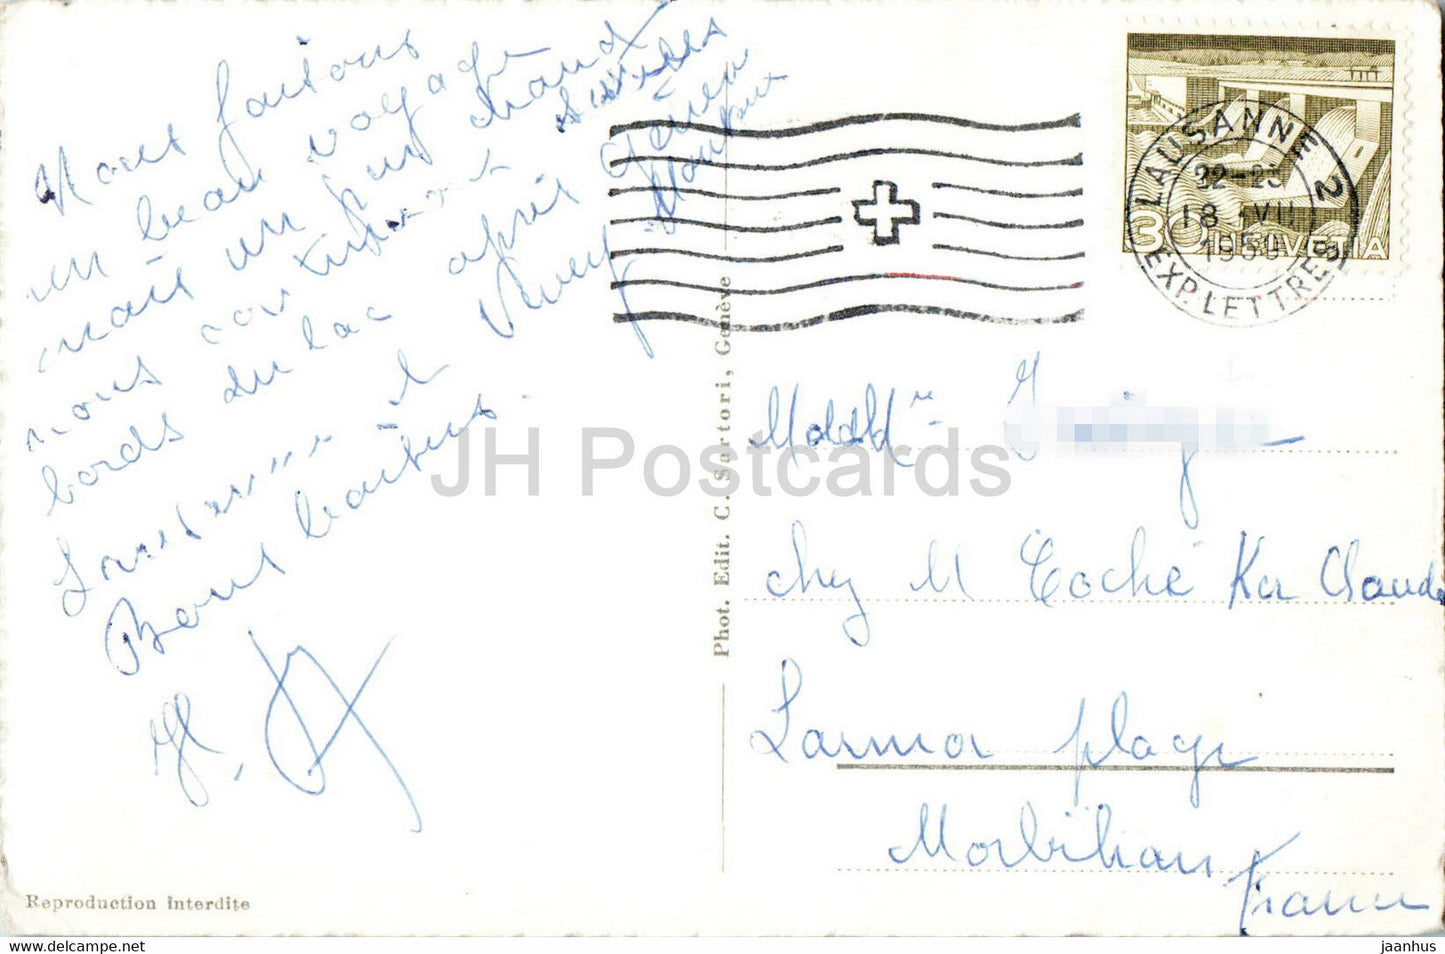 Nous faisons
un beau voyage
mais un peu chaud
nous continuons suivre les
bords du lac après Genève
Lausanne et Vevey Montreux
Bons baisers.
Reproduction interdite
Phot. Edit. C. Sartori, Genève
LAUSANNE 2
22-23
18 VII
1950
EXP. LETTRES
30 HELVETIA
chez M Coché Ker Claude
Larmor plage
Morbihan
France
JH Postcards
https://jhpostcards.com
jaanhus